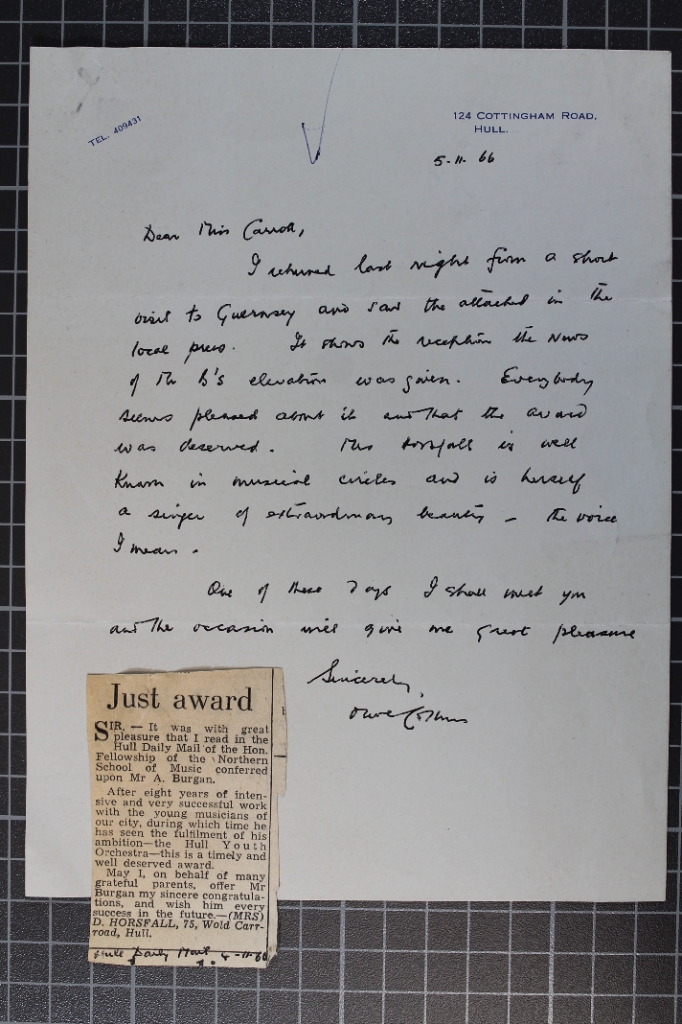 TEL. 409431
124 COTTINGHAM ROAD,
HULL.
5-11-66
Dear Miss Carroll,
I returned last night from a short
visit to Guernsey and saw the attached in the
local press. It shows the reception the news
of Mr B's elevation was given. Everybody
seems pleased about it and that the award
was deserved. Mrs Horsfall is well
known in musical circles and is herself
a singer of extraordinary beauty - the voice
I mean.
One of these days I shall meet you
and the occasion will give me great pleasure
Sincerely,
Just award
SIR, — It was with great
pleasure that I read in the
Hull Daily Mail of the Hon.
Fellowship of the Northern
School of Music conferred
upon Mr A. Burgan.
After eight years of inten-
sive and very successful work
with the young musicians of
our city, during which time he
has seen the fulfilment of his
ambition—the Hull Youth
Orchestra—this is a timely and
well deserved award.
May I, on behalf of many
grateful parents, offer Mr
Burgan my sincere congratula-
tions, and wish him every
success in the future.—(MRS)
D. HORSFALL, 75, Wold Carr-
road, Hull.
Hull Daily Mail 4-11-66